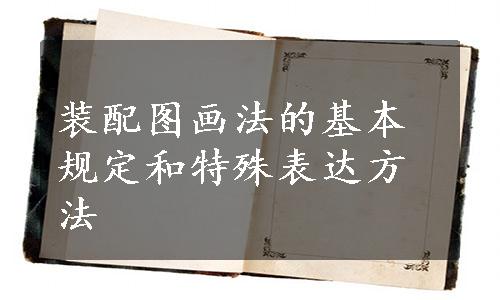 装配图画法的基本
规定和特殊表达方
法